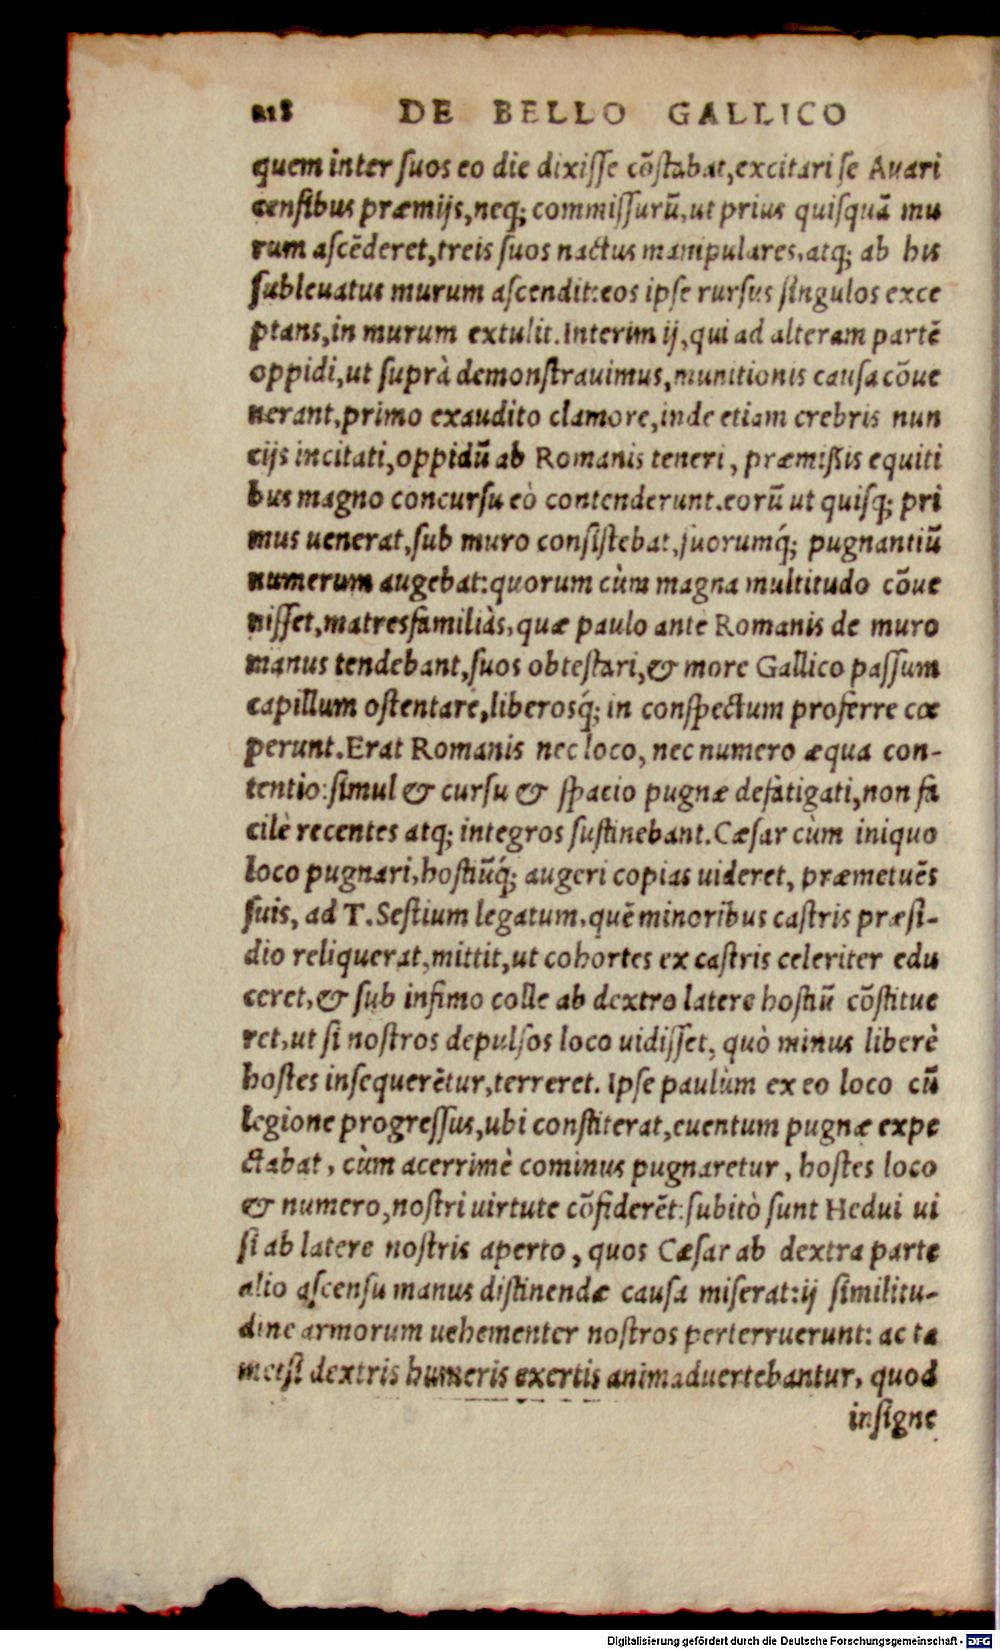 218 DE BELLO GALLICO
quem inter ſuos eo die dixiſſe cõſtabat,excitari ſe Auari
cenſibus præmijs,neq; commiſſurũ,ut prius quiſquã mu
rum aſcẽderet,treis ſuos nactus manipulares,atq; ab his
ſubleuatus murum aſcendit:eos ipſe rurſus ſingulos exce
ptans,in murum extulit.Interim ij,qui ad alteram partẽ
oppidi,ut ſuprà demonſtrauimus,munitionis cauſa cõue
nerant,primo exaudito clamore,inde etiam crebris nun
cijs incitati,oppidũ ab Romanis teneri, præmiſsis equiti
bus magno concurſu eò contenderunt.eorũ ut quiſq; pri
mus uenerat,ſub muro conſiſtebat,ſuorumq́; pugnantiũ
numerum augebat:quorum cùm magna multitudo cõue
niſſet,matresfamiliàs,quæ paulo ante Romanis de muro
manus tendebant,ſuos obteſtari,& more Gallico paſſum
capillum oſtentare,liberosq́; in conſpectum proferre cœ
perunt.Erat Romanis nec loco, nec numero æqua con-
tentio:ſimul & curſu & ſpacio pugnæ defatigati,non fa
cilè recentes atq; integros ſuſtinebant.Cæſar cùm iniquo
loco pugnari,hoſtiũq́; augeri copias uideret, præmetuẽs
ſuis, ad T.Seſtium legatum,quẽ minoribus caſtris præſi-
dio reliquerat,mittit,ut cohortes ex caſtris celeriter edu
ceret,& ſub infimo colle ab dextro latere hoſtiũ cõſtitue
ret,ut ſi noſtros depulſos loco uidiſſet, quò minus liberè
hoſtes inſequerẽtur,terreret. Ipſe paulùm ex eo loco cũ
legione progreſſus,ubi conſtiterat,euentum pugnæ expe
ctabat, cùm acerrimè cominus pugnaretur, hoſtes loco
& numero,noſtri uirtute cõfiderẽt:ſubitò ſunt Hedui ui
ſi ab latere noſtris aperto, quos Cæſar ab dextra parte
alio aſcenſu manus diſtinendæ cauſa miſerat:ij ſimilitu-
dine armorum uehementer noſtros perterruerunt: ac ta
metſi dextris humeris exertis animaduertebantur, quod
inſigne
Digitalisierung gefördert durch die Deutsche Forschungsgemeinschaft - DFG